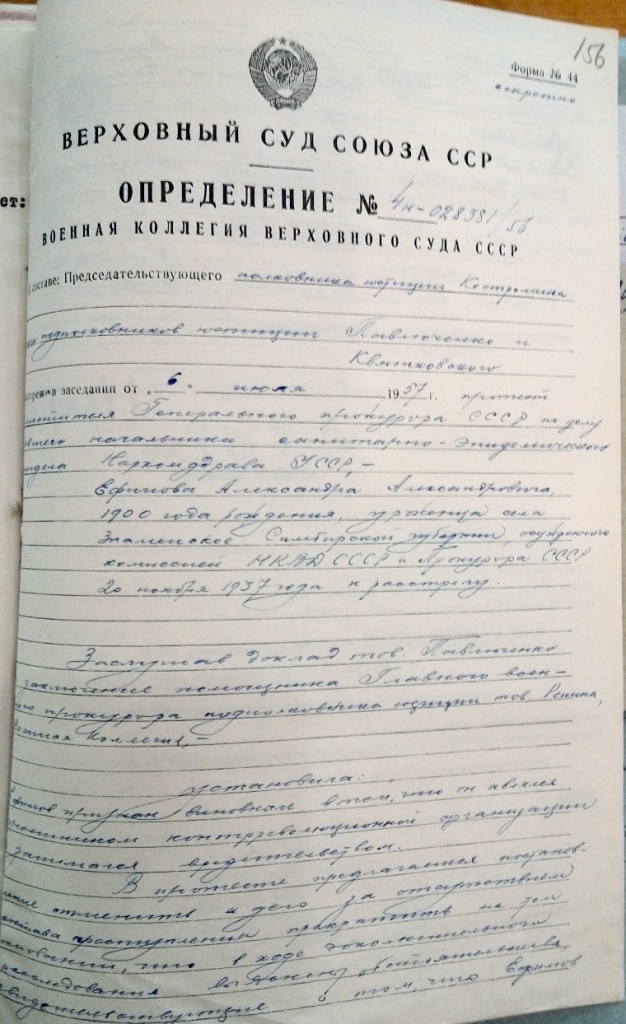 156
Форма № 44
секретно
ВЕРХОВНЫЙ СУД СОЮЗА ССР
ОПРЕДЕЛЕНИЕ № 4н-028381/56
ет:
ВОЕННАЯ КОЛЛЕГИЯ ВЕРХОВНОГО СУДА СССР
составе: Председательствующего полковника юстиции Костромина
подполковников юстиции Павлюченко и
Квятковского
заседании от „6" июля 1957 г. протест
Генерального прокурора СССР по делу
начальника санитарно-Эпидемического
Наркомздрава УССР,-
Ефимова Александра Александровича,
1900 года рождения, уроженца села
Знаменское Симбирской губернии, осужденного
комиссией НКВД СССР и Прокурора СССР
20 ноября 1937 года к расстрелу.
Заслушав доклад тов. Павлюченко
заключение помощника Главного воен-
прокурора подполковника юстиции тов.
Коллегия,-
установила:
Ефимов признан виновным в том, что он являлся
участником контрреволюционной организации
занимался вредительством.
В протесте предлагается постанов-
отменить и дело за отсутствием
состава преступления прекратить на том
основании, что в ходе дополнительного
расследования обстоятельства,
свидетельствующие о том, что Ефимов